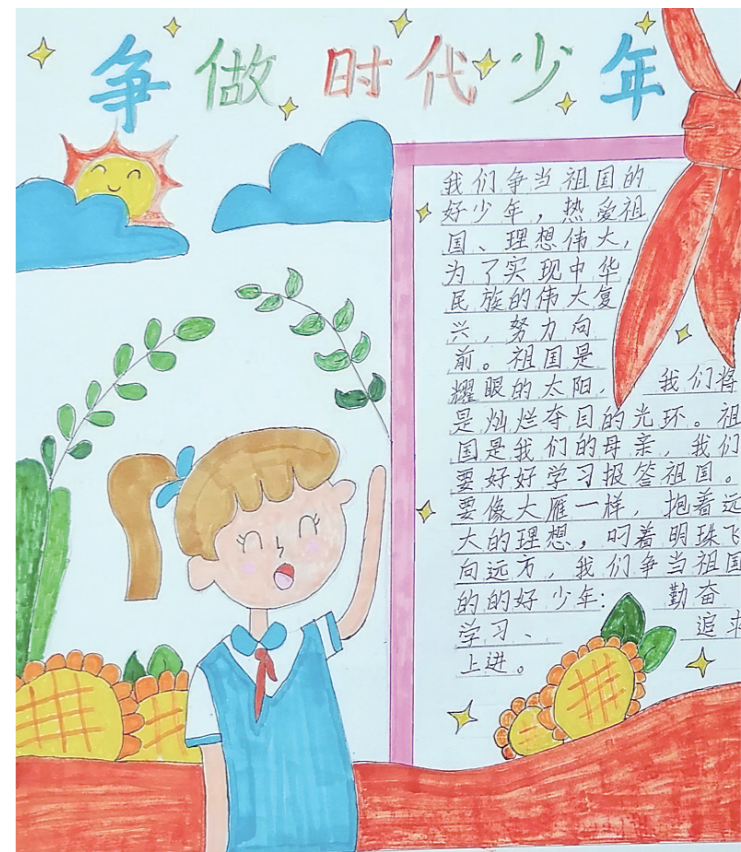 争做时代少年
我们争当祖国的
好少年，热爱祖
国、理想伟大，
为了实现中华
民族的伟大复
兴，努力向
前。祖国是
耀眼的太阳， 我们将
是灿烂夺目的光环。祖
国是我们的母亲，我们
要好好学习报答祖国。
要像大雁一样，抱着远
大的理想，叼着明珠飞
向远方，我们争当祖国
的的好少年： 勤奋
学习、 追求
上进。